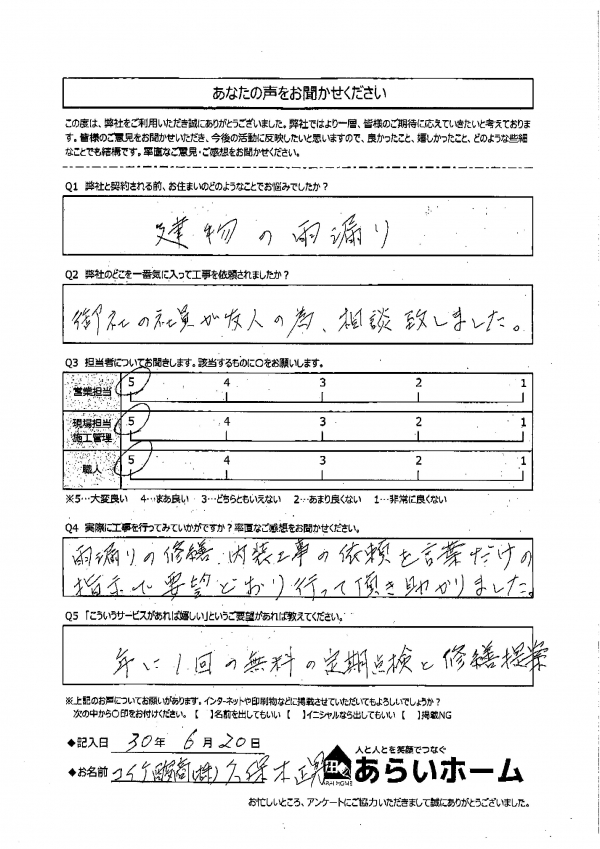 あなたの声をお聞かせください
この度は、弊社をご利用いただき誠にありがとうございました。弊社ではより一層、皆様のご期待に応えていきたいと考えておりま
す。皆様のご意見をお聞かせいただき、今後の活動に反映したいと思いますので、良かったこと、嬉しかったこと、どのような些細
なことでも結構です。率直なご意見・ご感想をお聞かせください。
Q1 弊社と契約される前、お住まいのどのようなことでお悩みでしたか？
建物の雨漏り
Q2 弊社のどこを一番気に入って工事を依頼されましたか？
御社の社員が友人の為、相談致しました。
Q3 担当者についてお聞きします。該当するものに○をお願いします。
営業担当 5 4 3 2 1
現場担当 5 4 3 2 1
施工管理
職人 5 4 3 2 1
※5…大変良い 4…まあ良い 3…どちらともいえない 2…あまり良くない 1…非常に良くない
Q4 実際に工事を行ってみていかがですか？率直なご感想をお聞かせください。
雨漏りの修繕、内装工事の依頼を言葉だけの
指示で要望どおり行って頂き助かりました。
Q5 「こういうサービスがあれば嬉しい」というご要望があれば教えてください。
年に1回の無料の定期点検と修繕提案
※上記のお声についてお願いがあります。インターネットや印刷物などに掲載させていただいてもよろしいでしょうか？
次の中から○印をお付けください。【 】名前を出してもいい 【 】イニシャルなら出してもいい 【 】掲載NG
◆記入日 30年 6月20日
人と人とを笑顔でつなぐ
◆お名前 コイケ 商(株) 久保木
ARAI HOME
あらいホーム
お忙しいところ、アンケートにご協力いただきまして誠にありがとうございました。